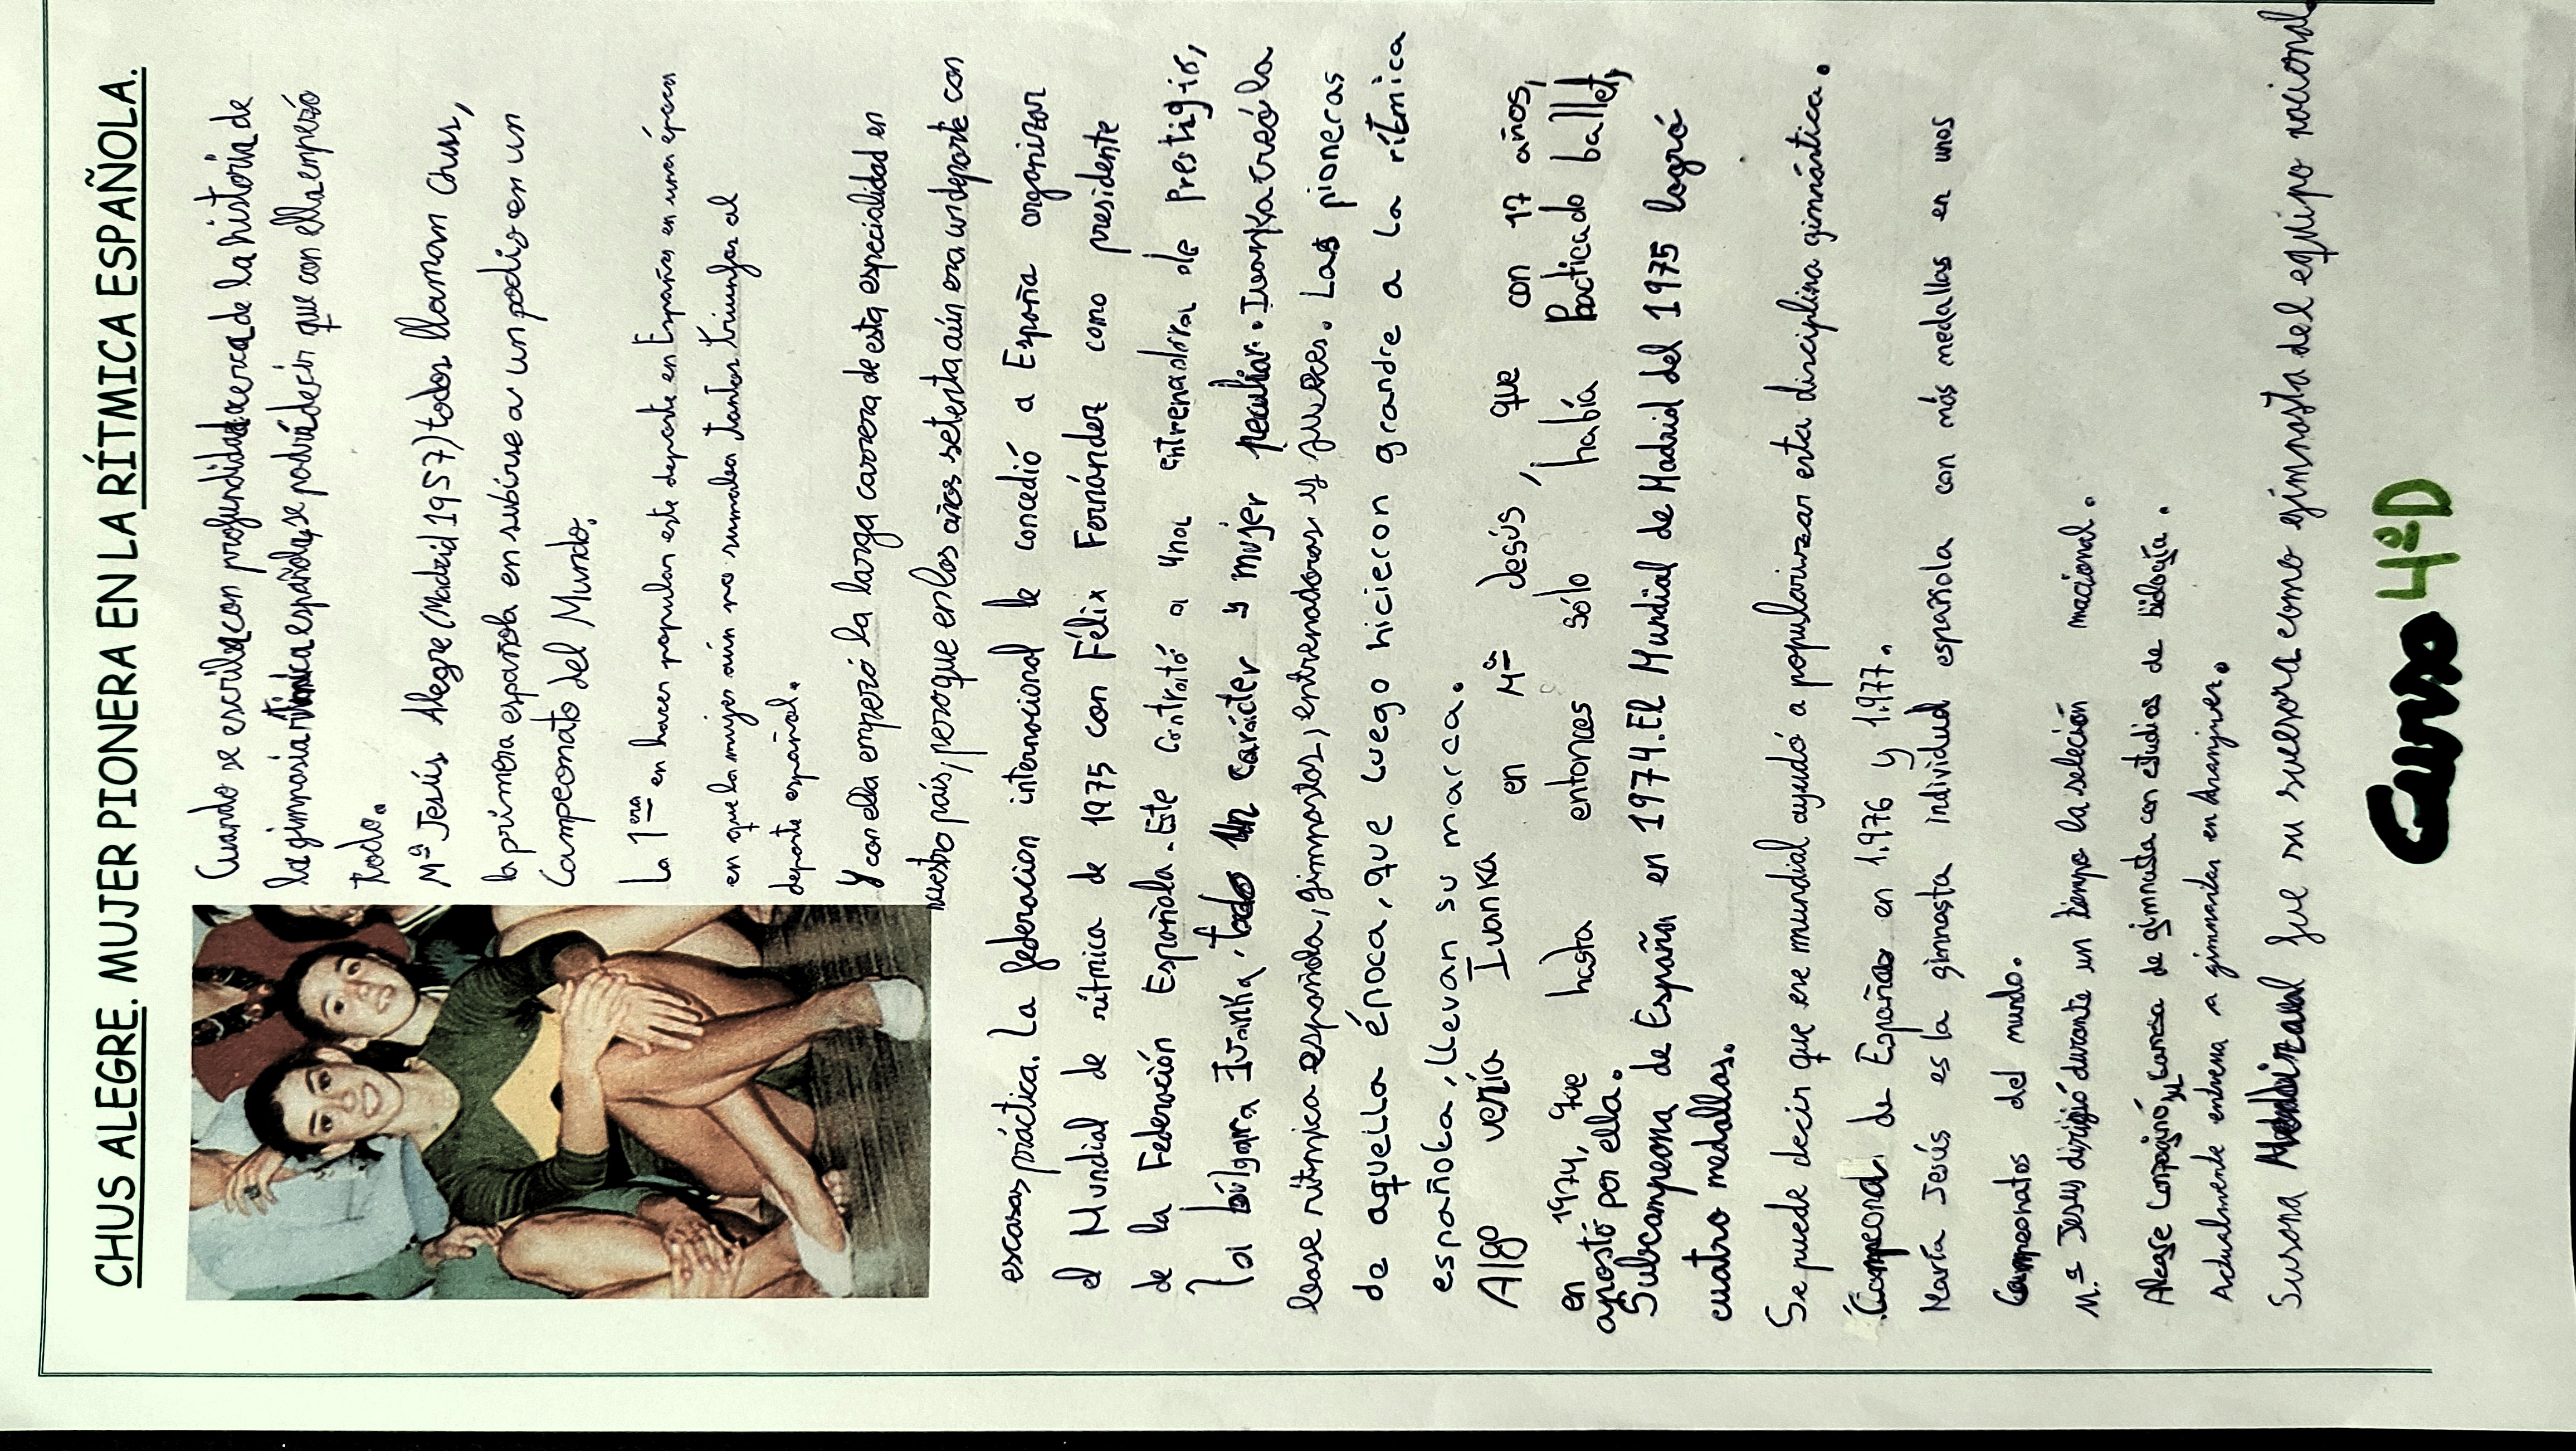 CHUS ALEGRE. MUJER PIONERA EN LA RÍTMICA ESPAÑOLA.
Cuando se escriba con profundidad acerca de la história de
la gimnasia rítmica española, se podrá decir que con ella empezó
todo.
Mª Jesús Alegre (Madrid 1957) todos llaman Chus,
la primera española en subirse a un podio en un
Campeonato del Mundo.
La 1era en hacer popular este deporte en España en una época
en que la mujer aún no sumaba tantos triunfos al
deporte español.
Y con ella empezó la larga carrera de esta especialidad en
nuestro país, pero que en los años setenta aún era un deporte con
escasas práctica. La federacion internacional le concedió a España organizar
el Mundial de rítmica de 1975 con Félix Fernández como presidente
de la Federación Española. Este contrató a una entrenadora de prestigio,
la búlgara Ivanka, todo un carácter y mujer peculiar. Ivanka creó la
base rítmica española, gimnastas, entrenadoras y jueces. Las pioneras
de aquella énoca, que luego hicieron grande a la rítmica
española, llevan su marca.
Algo vería Ivanka en Mª Jesús, que con 17 años,
en 1974, que hasta entonces sólo había Practicado ballet,
apostó por ella.
Subcampeona de España en 1974. El Mundial de Madrid del 1975 logró
cuatro medallas.
Se puede decir que ese mundial ayudó a popularizar esta disciplina gimnástica.
Campeona de España en 1.976 y 1.977.
María Jesús es la gimnasta individual española con más medallas en unos
Campeonatos del mundo.
M.ª Jesus dirigió durante un tiempo la seleción nacional.
Alegre Compaginó su carrera de gimnasta con estudios de biología.
Actualmente entrena a gimnastas en Aranjuez.
Susana Mendizábal fue su sucesora como gimnasta del equipo nacional.
Curso 4ºD